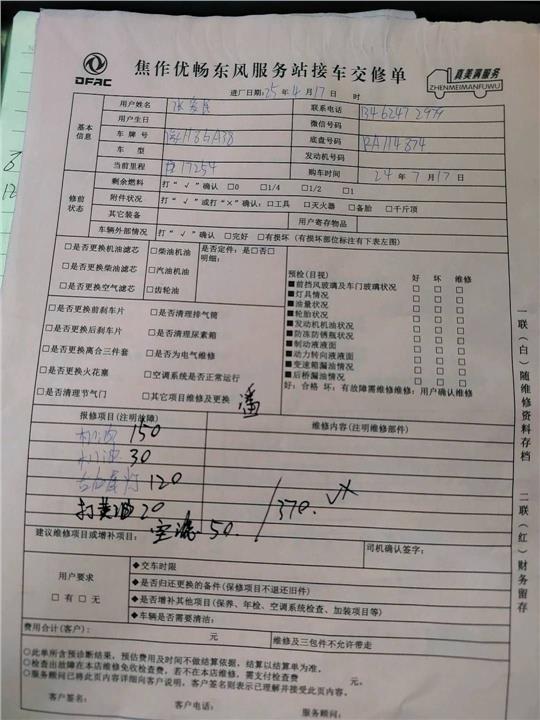 DFAC
焦作优畅东风服务站接车交修单
真美满服务
ZHENMEIMANFUWU
进厂日期:25年4月17日 时
基本信息
用户姓名 联系电话
用户生日 微信号码
车牌号 底盘号码 RA114874
车型 发动机号码
当前里程 17254 购车时间 24年7月17日
修前状态
剩余燃料 打“√”确认 □0 □1/4 □1/2 □1
附件状况 打“√”或打“×”确认:□工具 □灭火器 □备胎 □千斤顶
其它装备 用户寄存物品
车辆外部情况 打“√”确认 □完好 □有损坏(有损坏部位标注有下表左图)
□是否更换机油滤芯 □柴油机油 是否定件:是□否□
明细:
□是否更换柴油滤芯 □汽油机油
□是否更换空气滤芯 □齿轮油
□是否更换前刹车片 □是否清理排气筒
□是否更换后刹车片 □是否清理尿素箱
□是否更换离合三件套 □是否为电气维修
□是否更换火花塞 □空调系统是否正常运行
□是否清理节气门 □其它项目维修及更换
预检(目视) 好 坏 维修
■前挡风玻璃及车门玻璃状况 □ □ □
■灯具情况 □ □ □
■油量状况 □ □ □
■轮胎状况 □ □ □
■发动机机油状况 □ □ □
■防冻防锈瓶状况 □ □ □
■制动液液面 □ □ □
■动力转向液液面 □ □ □
■变速箱漏油情况 □ □ □
■后桥漏油情况 □ □ □
好:合格 坏:有故障需维修维修:用户确认维修
报修项目(注明故障) 维修内容(注明维修部件)
机油 150
机滤 30
120
打黄油 20
370.
建议维修项目或增补项目: 空滤 50. 司机确认签字:
用户要求
□有□无
◆交车时限
◆是否归还更换的备件(保修项目不退还旧件)
◆是否增补其他项目(保养、年检、空调系统检查、加装项目等)
◆车辆是否需要清洁:
费用合计(客户): 元 维修及三包件不允许带走
○此单所含预诊断结果,预估费用及时间不做结算依据,结算以结算单为准。
○检查出故障在本店维修免收检查费,若不在本店维修,需支付检查费 元。
○服务顾问已将此页内容详细向客户说明,客户签名则表示已理解并接受此页内容。
客户签名: 客户电话: 服务顾问:
一联(白)随维修资料存档 二联(红)财务留存